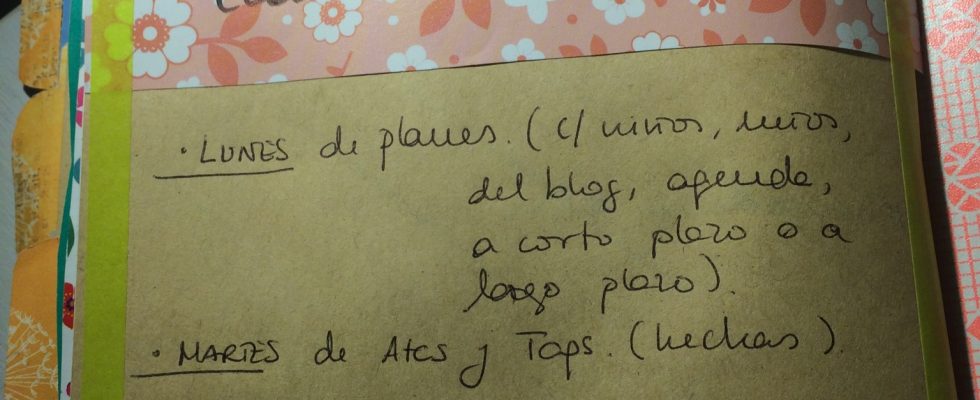 · LUNES de planes. (c/ niños, míos,
del blog, agenda,
a corto plazo o a
largo plazo).
· MARTES de Atcs y Tops. (hechas).